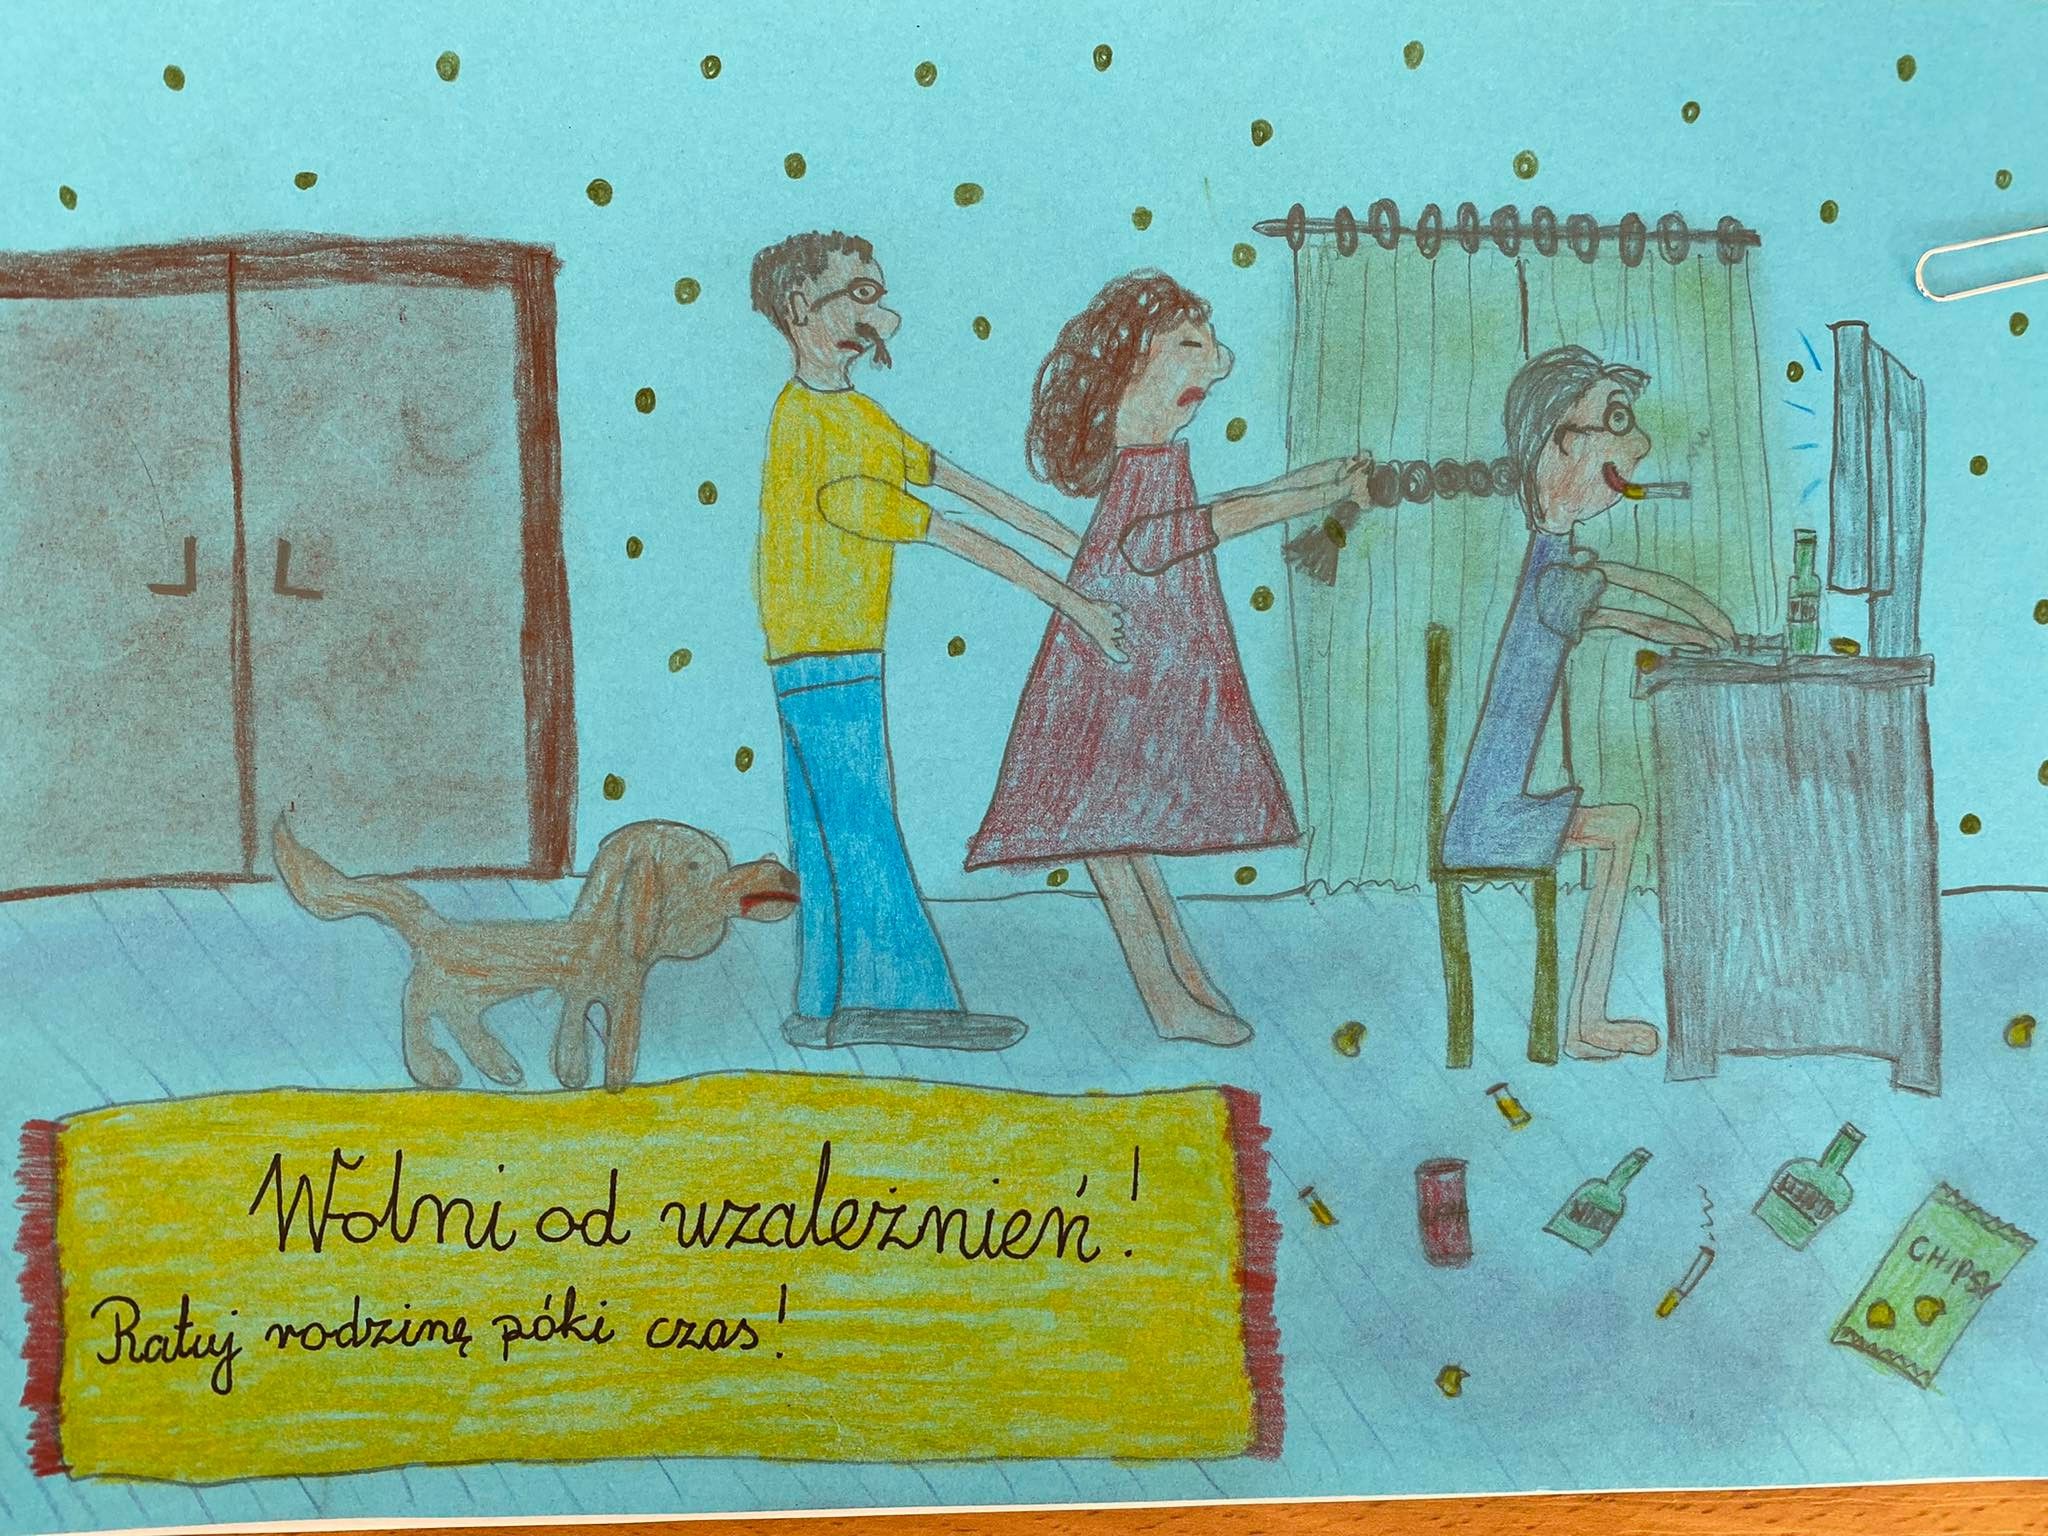 Wolni od uzależnień!
Ratuj rodzinę póki czas!
WINO
CHIPSY